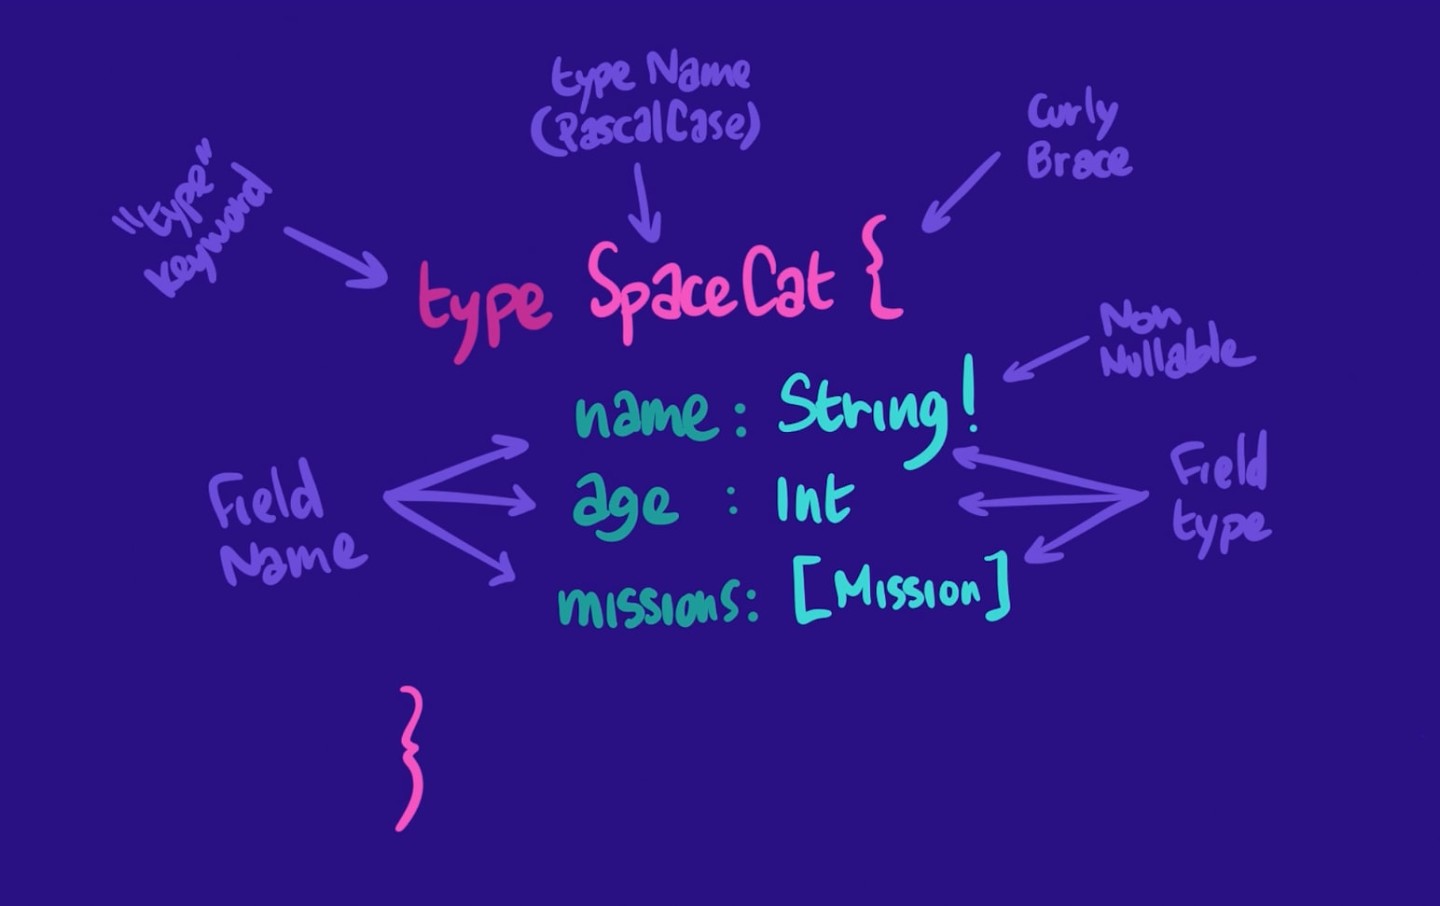 type Name
(PascalCase)
Curly
Brace
"type"
keyword
type SpaceCat {
Non
Nullable
name: String!
age : Int
missions: [Mission]
Field
Name
Field
type
}